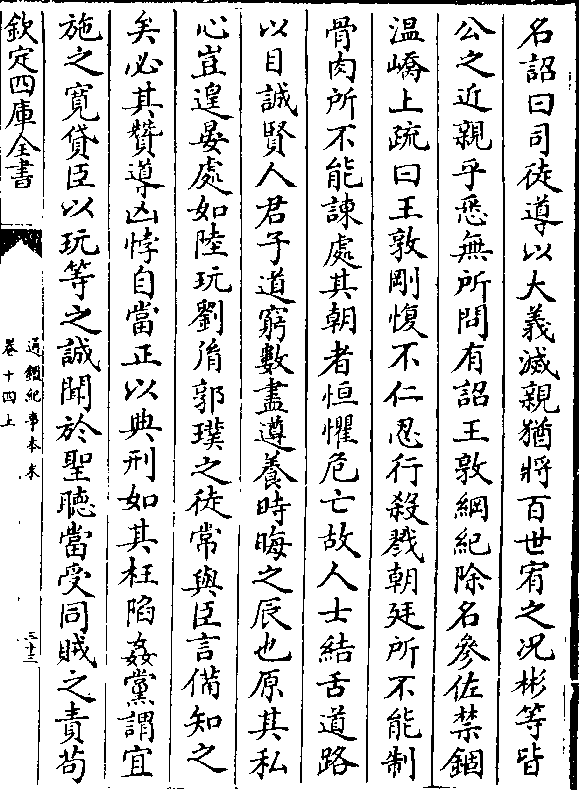 名詔曰司徒導以大義滅親猶將百世宥之况彬等皆
公之近親乎悉無所問有詔王敦綱紀除名參佐禁錮
温嶠上疏曰王敦剛愎不仁忍行殺戮朝廷所不能制
骨肉所不能諌處其朝者恒懼危亡故人士結舌道路
以目誠賢人君子道窮數盡遵養時晦之辰也原其私
心豈遑晏處如陸玩劉𦙍郭璞之徒常與臣言備知之
矣必其贊導凶悖自當正以典刑如其枉陷姦黨謂宜
施之寛貸臣以玩等之誠聞於聖聽當受同賊之責苟
欽定四庫全書
通鑑紀事本末
卷十四上
三十三